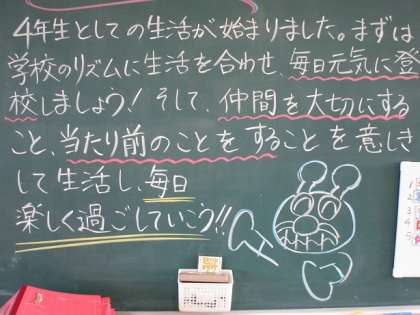 4年生としての生活が始まりました。まずは
学校のリズムに生活を合わせ、毎日元気に登
校しましょう！そして、仲間を大切にする
こと、当たり前のことをすることを意しき
して生活し、毎日
楽しく過ごしていこう!!